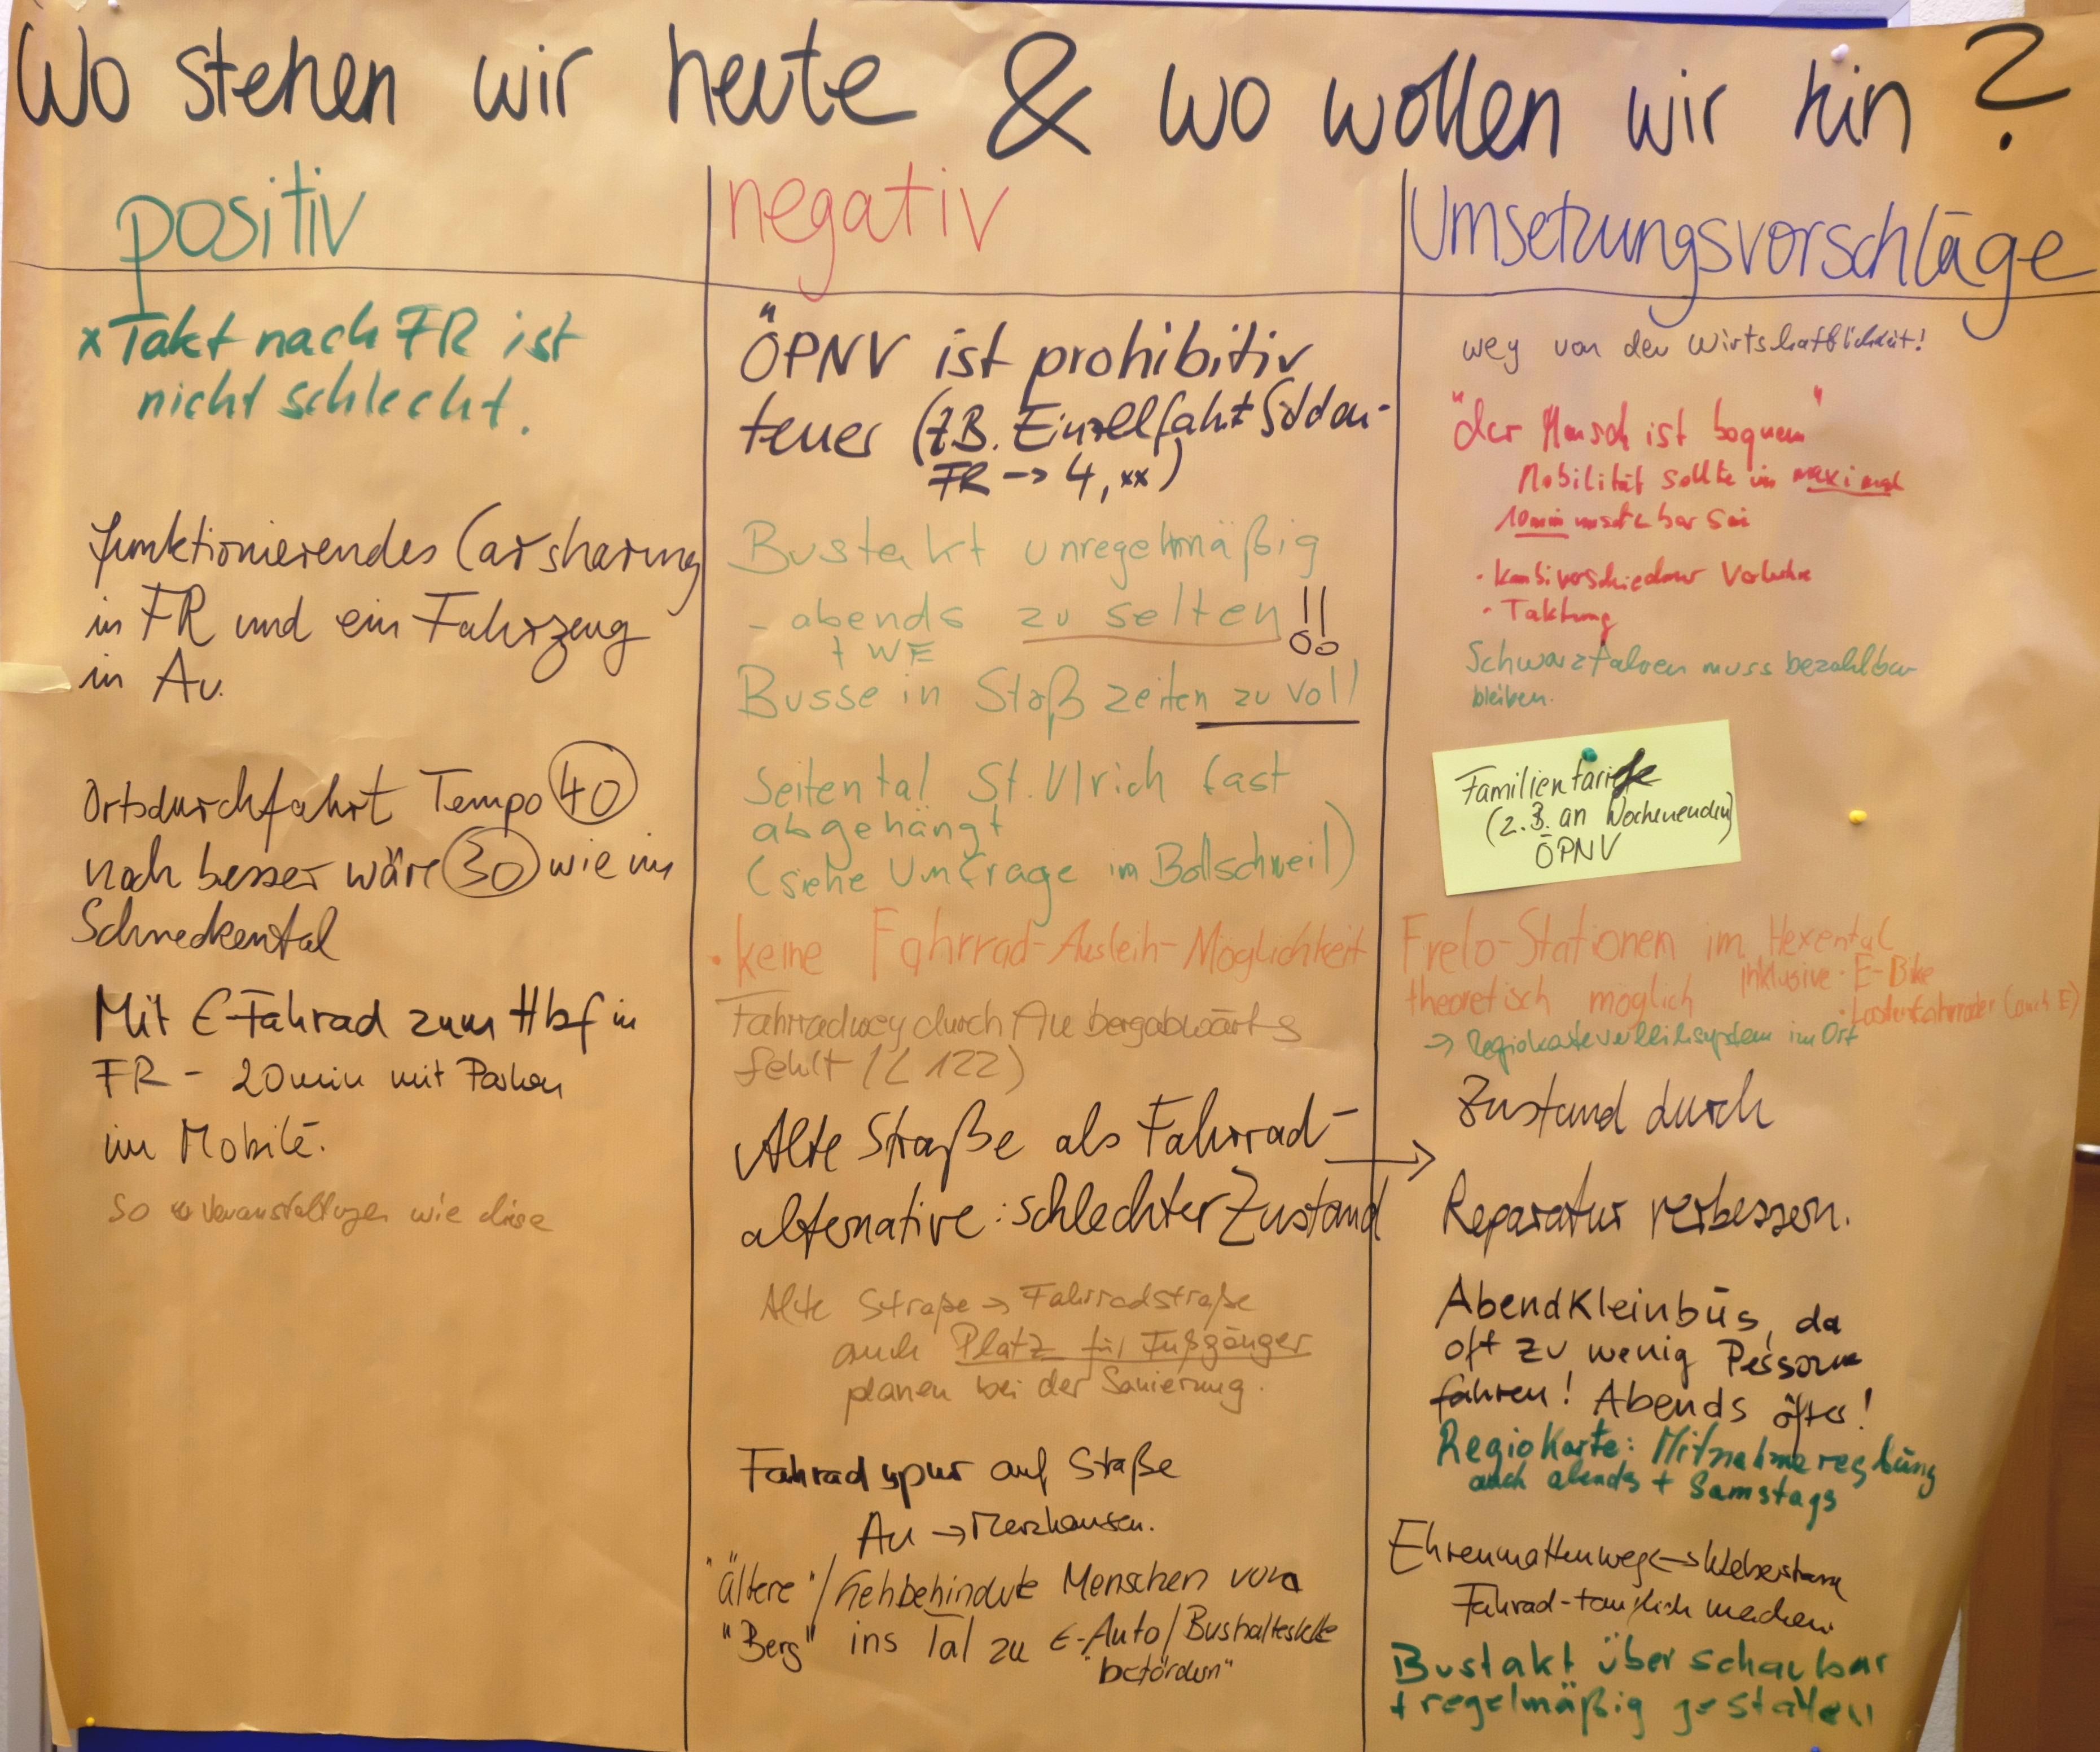 Wo stehen wir heute & wo wollen wir hin?
positiv
x Takt nach FR ist
nicht schlecht.
funktionierendes Carsharing
in FR und ein Fahrzeug
in Au.
Ortsdurchfahrt Tempo 40
noch besser wäre 30 wie im
Schneckental
Mit E-Fahrad zum Hbf in
FR - 20min mit Parken
im Mobile.
So Veranstaltungen wie diese
negativ
ÖPNV ist prohibitiv
teuer (z.B. Einzellfahrt Sölden-
FR -> 4,xx)
Bustakt unregelmäßig
- abends zu selten !!
+ WE
Busse in Stoßzeiten zu voll
Seitental St. Ulrich fast
abgehängt
(siehe Umfrage in Bollschweil)
• keine Fahrrad-Ausleih-Möglichkeit
Fahrradweg durch Au bergabwärts
fehlt (L 122)
Alte Straße als Fahrrad-
alternative: schlechter Zustand →
Alte Straße → Fahrradstraße
auch Platz für Fußgänger
planen bei der Sanierung.
Fahrad spur auf Staße
Au → Merzhausen.
"Ältere"/Gehbehinderte Menschen vom
"Berg" ins Tal zu E-Auto/Bushaltestelle
"befördern"
Umsetzungsvorschläge
weg von der Wirtschaftlichkeit!
"der Mensch ist bequem"
Mobilität sollte in maximal
10min umsetzbar sein
• Kombi verschiedener Verkehre
• Taktung
Schwarzfahren muss bezahlbar
bleiben.
Familientarife
(z.B. an Wochenenden)
ÖPNV
Frelo-Stationen im Hexental
theoretisch möglich inklusive • E-Bike
• Lastenfahrräder (auch E)
→ Regiokarteverleihsystem im Ort
Zustand durch
Reparatur verbessern.
AbendKleinbus, da
oft zu wenig Personen
fahren! Abends öfter!
RegioKarte: Mitnahmeregelung
auch abends + Samstags
Ehrenmattenweg
Fahrrad-tauglich machen
Bustakt überschaubar
+ regelmäßig gestalten